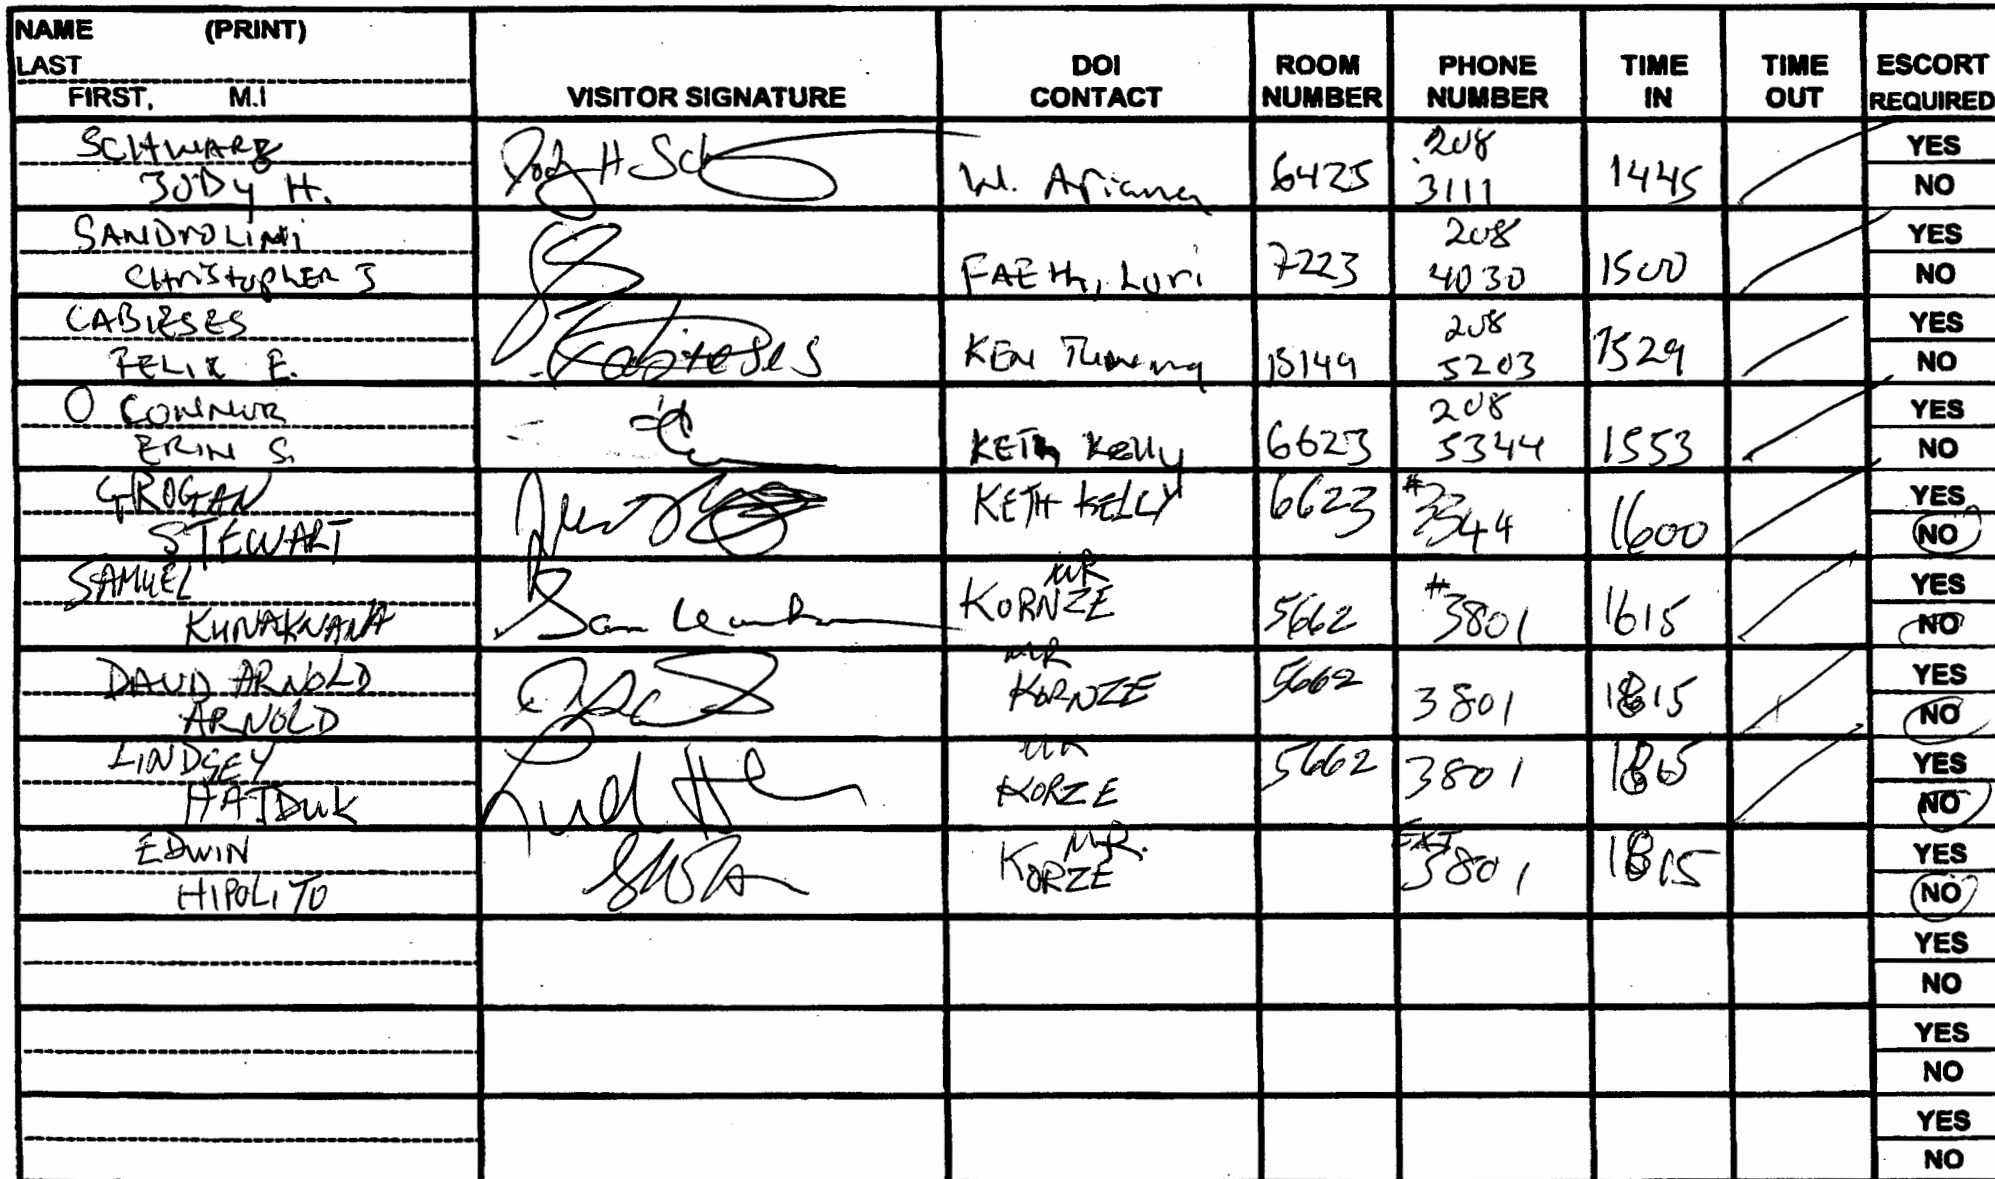 NAME (PRINT)
LAST
FIRST, M.I
VISITOR SIGNATURE
DOI CONTACT
ROOM NUMBER
PHONE NUMBER
TIME IN
TIME OUT
ESCORT REQUIRED
SCHWARZ
JODY H.
Jody H Sch
W. Ariana
6425
208
3111
1445
YES
NO
SANDROLINI
CHRISTOPHER J
FAETH, Lori
7223
208
4030
1500
YES
NO
CABIESES
FELIX E.
Cabieses
KEN
15149
208
5203
1529
YES
NO
O CONNOR
ERIN S.
KETH Kelly
6623
208
5344
1553
YES
NO
GROGAN
STEWART
KETH KELLY
6623
#
3544
1600
YES
NO
SAMUEL
KUNAKNANA
Sam
MR
KORNZE
5662
#3801
1615
YES
NO
DAVID ARNOLD
ARNOLD
MR
KORNZE
5662
3801
1815
YES
NO
LINDSEY
HAJDUK
MR
KORZE
5662
3801
YES
NO
EDWIN
HIPOLITO
MR.
KORZE
EXT
3801
1815
YES
NO
YES
NO
YES
NO
YES
NO